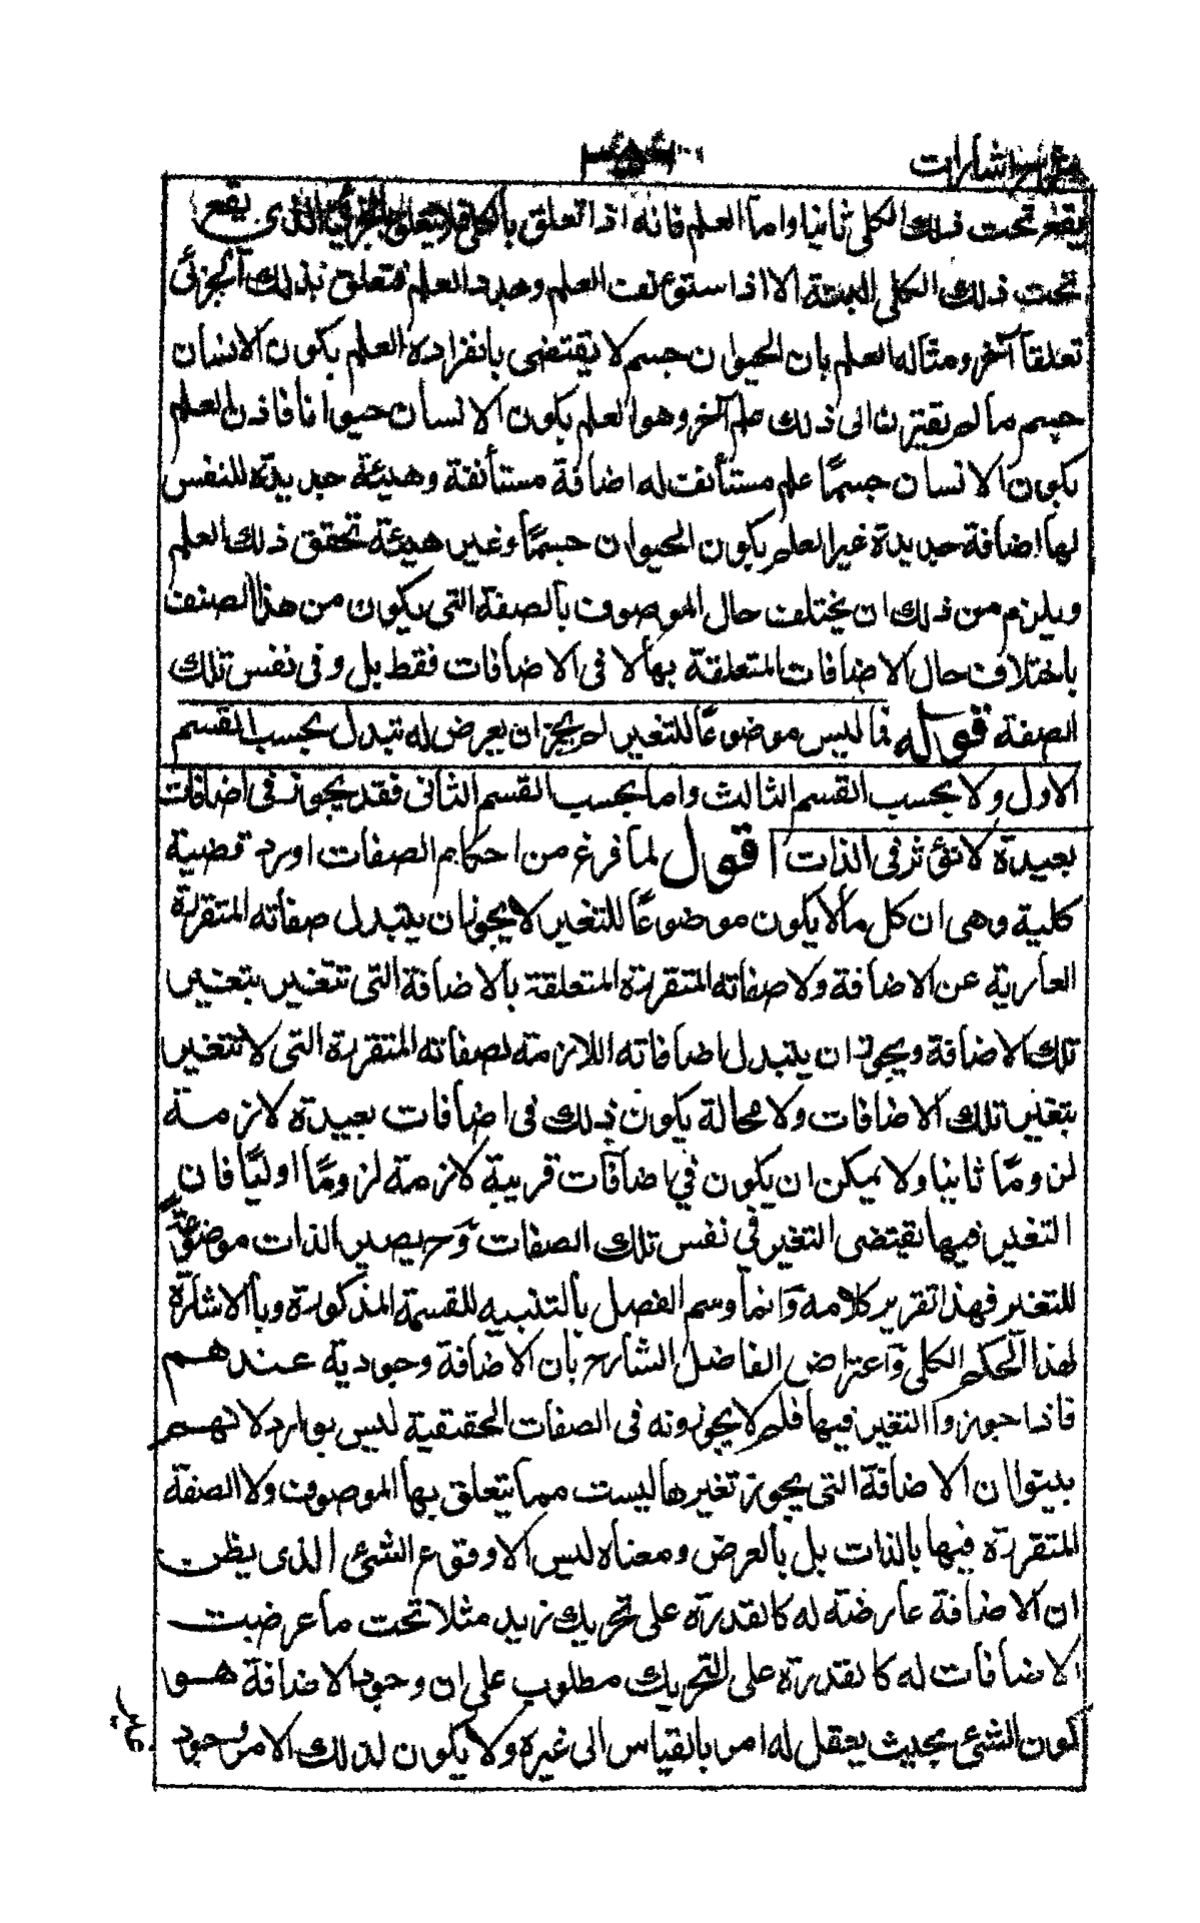 شرح اشارات
يقع تحت ذلك الكلى ثانيا واما العلم فانه اذا تعلق بالكلى فلا يتعلق بالجزئى الذى يقع
تحت ذلك الكلى البتة الا اذا استونف العلم وجدد العلم فتعلق بذلك الجزئى
تعلقا آخر ومثاله العلم بان الحيوان جسم لا يقتضى بانفراده العلم بكون الانسان
جسم ما لم يقترن الى ذلك علم آخر وهو العلم بكون الانسان حيوانا فاذن العلم
بكون الانسان جسمًا علم مستأنف له اضافة مستأنفة وهيئة جديدة للنفس
لها اضافة جديدة غير العلم بكون الحيوان جسمًا وغير هيئة تحقق ذلك العلم
ويلزم من ذلك ان يختلف حال الموصوف بالصفة التى يكون من هذا الصنف
باختلاف حال الاضافات المتعلقة بها لا فى الاضافات فقط بل وفى نفس تلك
الصفة قوله فما ليس موضوعًا للتغير لم يجز ان يعرض له تبدل بحسب القسم
الاول ولا بحسب القسم الثالث واما بحسب القسم الثانى فقد يجوز فى اضافات
بعيدة لا تؤثر فى الذات اقول لما فرغ من احكام الصفات اورد قضية
كلية وهى ان كل ما لا يكون موضوعًا للتغير لا يجوز ان يتبدل صفاته المتقررة
العارية عن الاضافة ولا صفاته المتقررة المتعلقة بالاضافة التى تتغير بتغير
تلك الاضافة ويجوز ان يتبدل اضافاته اللازمة لصفاته المتقررة التى لا تتغير
بتغير تلك الاضافات ولا محالة يكون ذلك فى اضافات بعيدة لازمة
لزومًا ثانيا ولا يمكن ان يكون في اضافات قريبة لازمة لزومًا اوليًا فان
التغير فيها يقتضى التغير في نفس تلك الصفات وح يصير الذات موضوعة
للتغير فهذا تقرير كلامه وانما وسم الفصل بالتنبيه للقسمة المذكورة وبالاشارة
لهذا الحكم الكلى واعتراض الفاضل الشارح بان الاضافة وجودية عندهم
فاذا جوزوا التغير فيها فلم لا يجوزونه فى الصفات الحقيقية ليس بوارد لانهم
بينوا ان الاضافة التى يجوز تغيرها ليست مما يتعلق بها الموصوف ولا الصفة
المتقررة فيها بالذات بل بالعرض ومعناه ليس الا وقوع الشئ الذى يظن
ان الاضافة عارضة له كالقدرة على تحريك زيد مثلا تحت ما عرضت
الاضافات له كالقدرة على التحريك مطلوب على ان وجود الاضافة هو
كون الشئ بحيث يعقل له امر بالقياس الى غيره ولا يكون لذلك الامر وجود